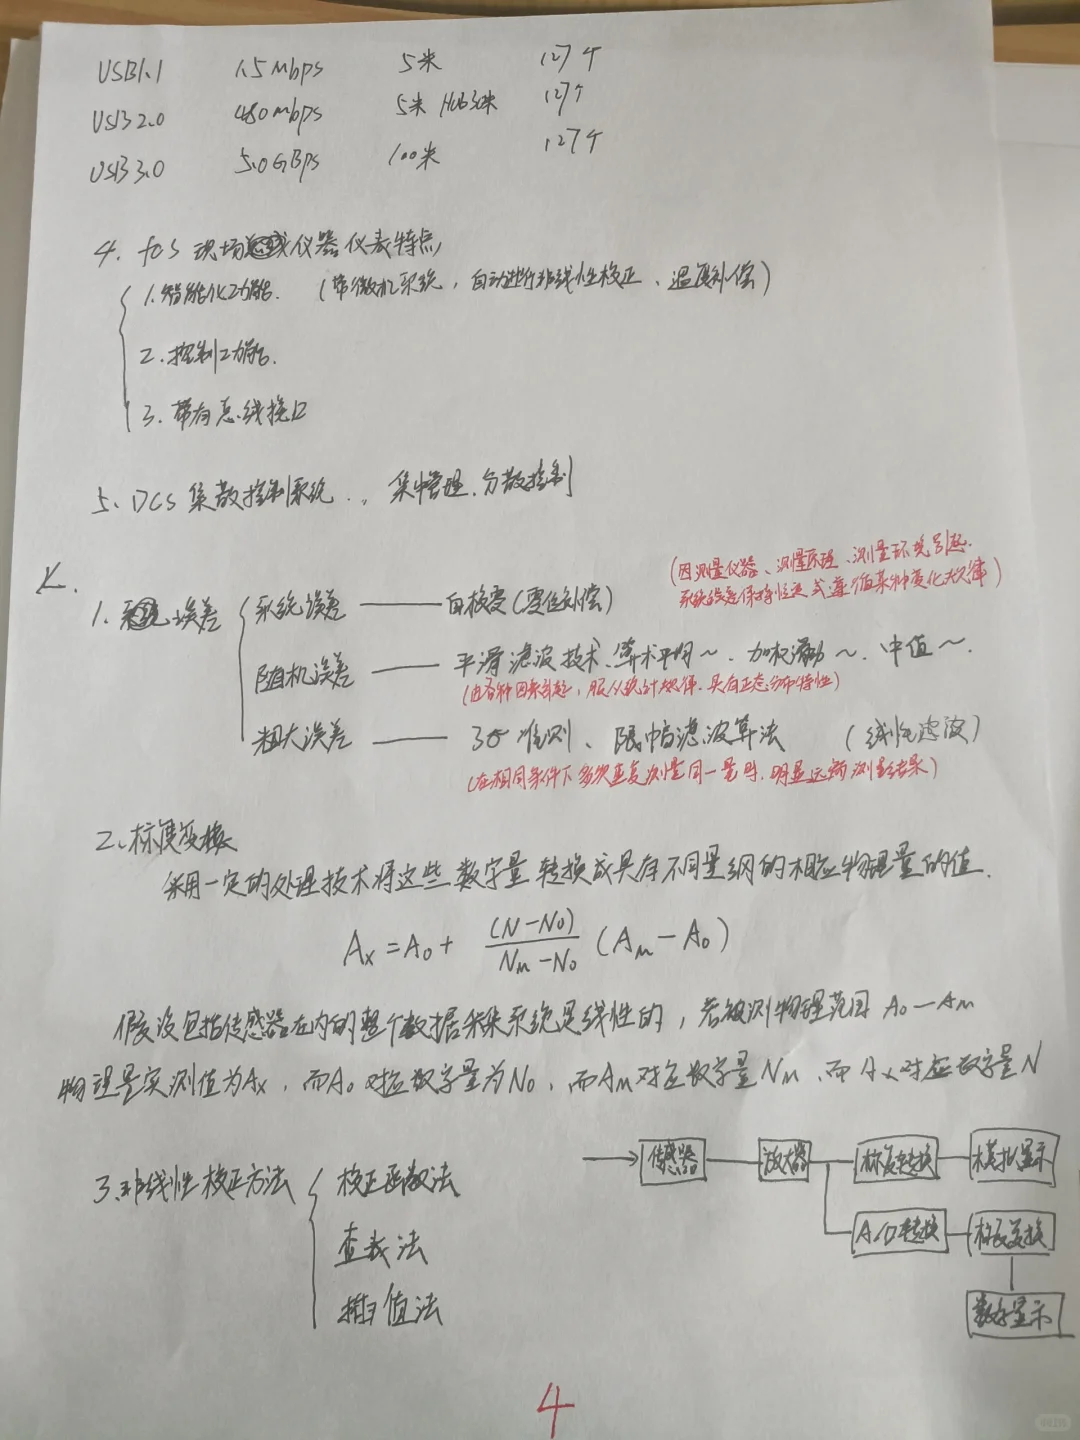 USB1.1 1.5Mbps 5米 127个
USB2.0 480mbps 5米 Hub30米 127个
USB3.0 5.0GBps 100米 127个
4. fcs 现场总线仪器仪表特点
1.智能化功能. (带微机系统,自动进行非线性校正、温度补偿)
2.控制功能.
3.带有总线接口
5、DCS 集散控制系统 .. 集中管理.分散控制
(因测量仪器、测量原理、测量环境引起.
系统误差保持恒定 或遵循某种变化规律)
1. 误差
系统误差 —— 自校零(零位补偿)
随机误差 —— 平滑滤波技术、算术平均~、加权滑动~、中值~.
(由各种因素引起,服从统计规律.具有正态分布特性)
粗大误差 —— 3σ准则、限幅滤波算法 (线性滤波)
(在相同条件下多次重复测量同一量时.明显远离测量结果)
2、标度变换
采用一定的处理技术将这些数字量转换成具有不同量纲的相应物理量的值.
Ax = A0 + (N-N0)/(Nm-N0) (Am-A0)
假设包括传感器在内的整个数据采集系统是线性的,若被测物理范围 A0—Am
物理量实测值为Ax,而A0对应数字量为N0,而Am对应数字量Nm、而Ax对应数字量N
3、非线性校正方法
校正函数法
查表法
插值法
传感器 放大器 标度转换 模拟显示
A/D转换 标度变换
数字显示
4